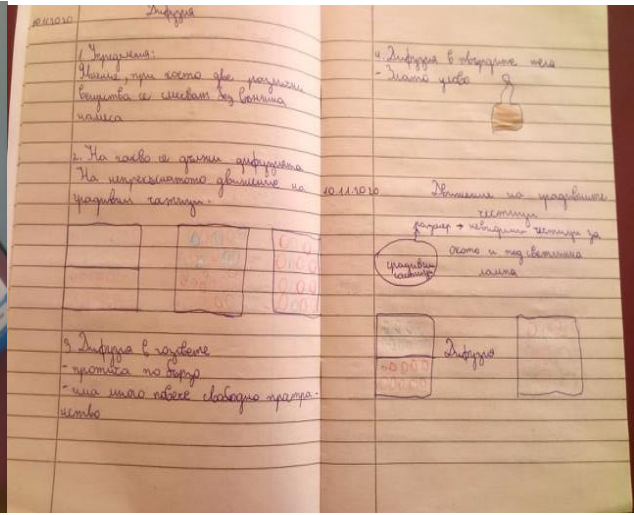 10.11.2020
Дифузия
1. Определения:
Явление, при което две различни
вещества се смесват без външна
намеса
2. На какво се дължи дифузията
На непрекъснатото движение на
градивни частици.
3. Дифузия в газовете
- протича по бързо
- има много повече свободно простра-
нство
4. Дифузия в твърдите тела
- Злато олово
10.11.2020
Движение на градивните
частици
размер → невидими частици за
окото и под светлинна
лампа
градивни
частици
Дифузия